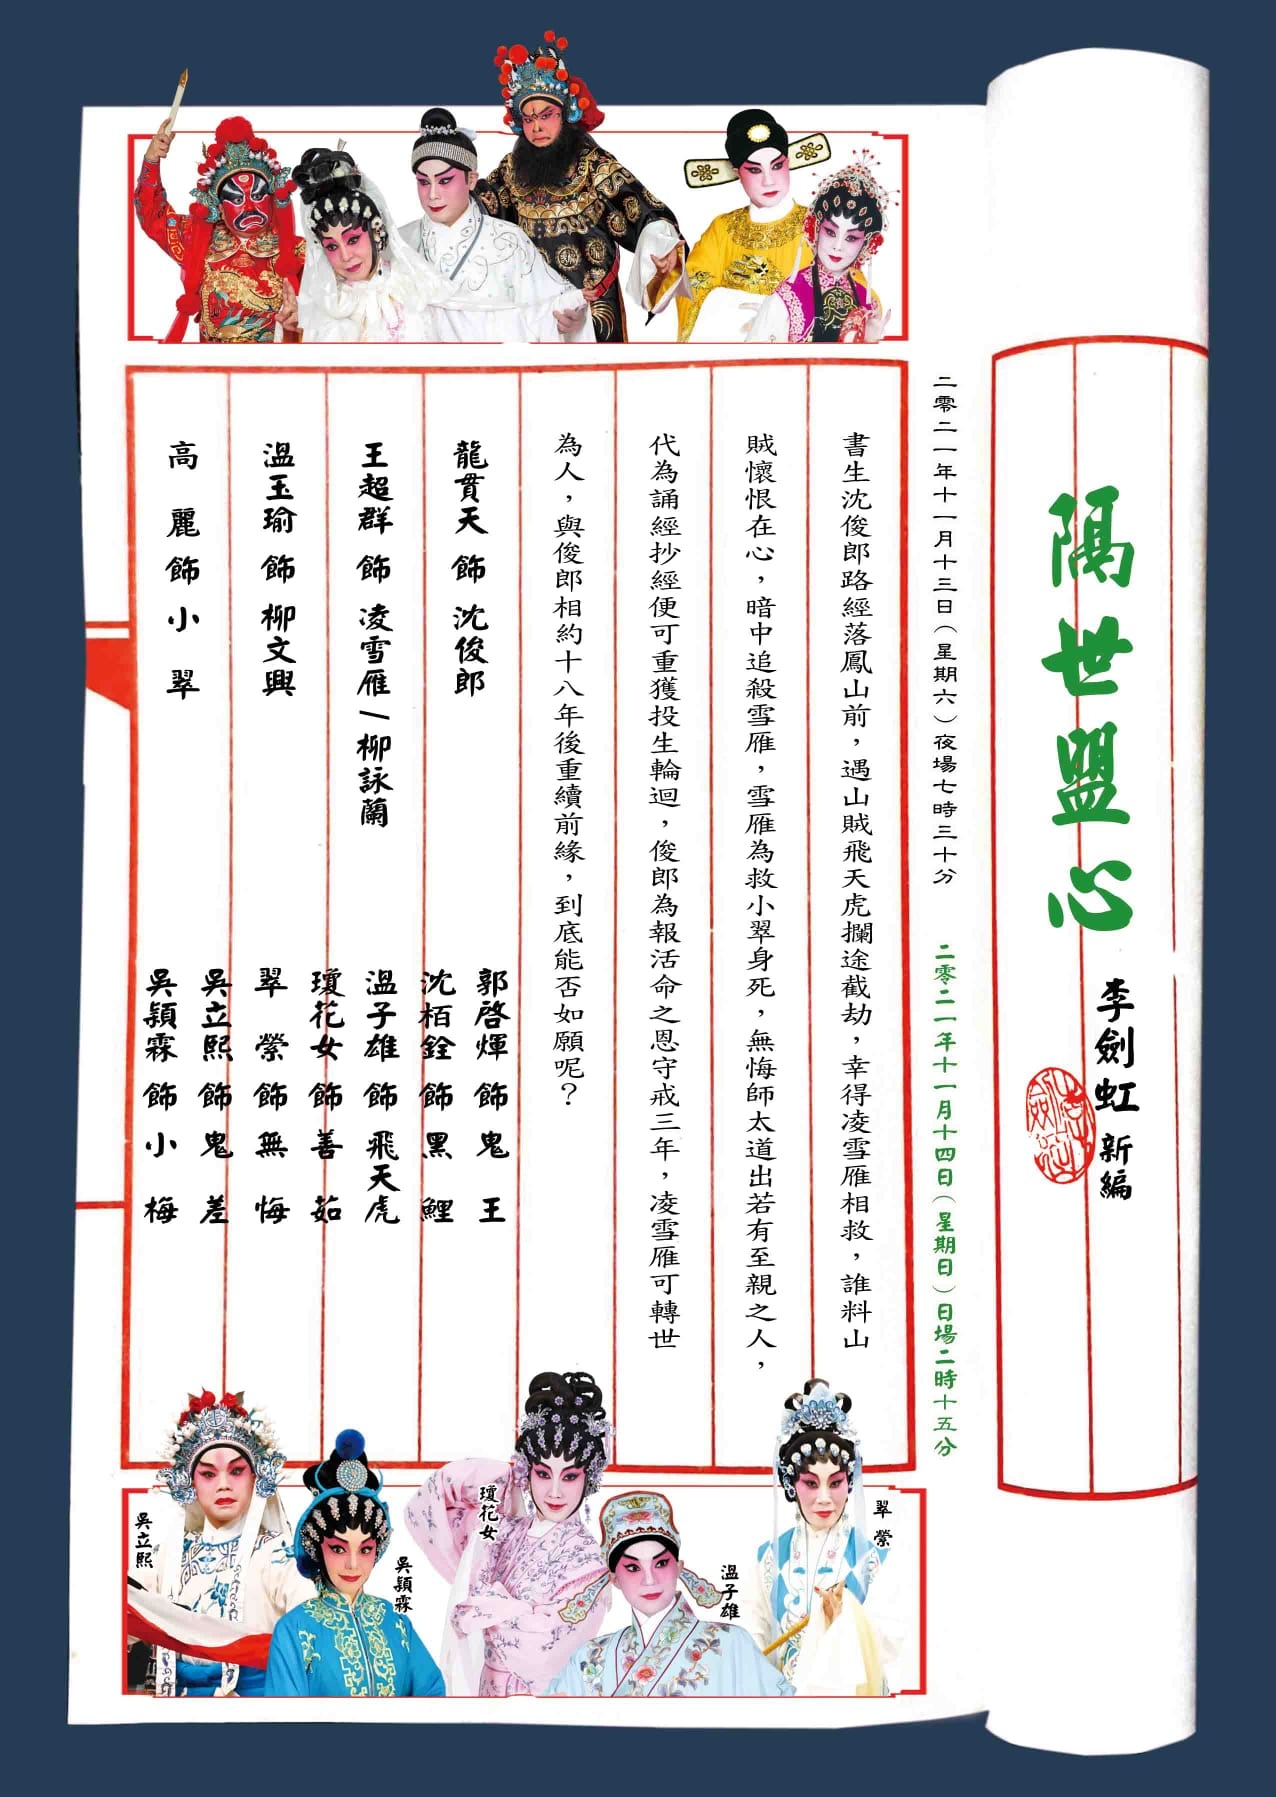 隔世盟心
李劍虹 新編
二零二一年十一月十三日（星期六）夜場七時三十分
二零二一年十一月十四日（星期日）日場二時十五分
書生沈俊郎路經落鳳山前，遇山賊飛天虎攔途截劫，幸得凌雪雁相救，誰料山
賊懷恨在心，暗中追殺雪雁，雪雁為救小翠身死，無悔師太道出若有至親之人，
代為誦經抄經便可重獲投生輪迴，俊郎為報活命之恩守戒三年，凌雪雁可轉世
為人，與俊郎相約十八年後重續前緣，到底能否如願呢？
龍貫天 飾 沈俊郎
王超群 飾 凌雪雁/柳詠蘭
溫玉瑜 飾 柳文興
高麗 飾 小翠
郭啓煇 飾 鬼王
沈栢銓 飾 黑鯉
溫子雄 飾 飛天虎
瓊花女 飾 善茹
翠縈 飾 無悔
吳立熙 飾 鬼差
吳穎霖 飾 小梅
翠縈
溫子雄
瓊花女
吳穎霖
吳立熙